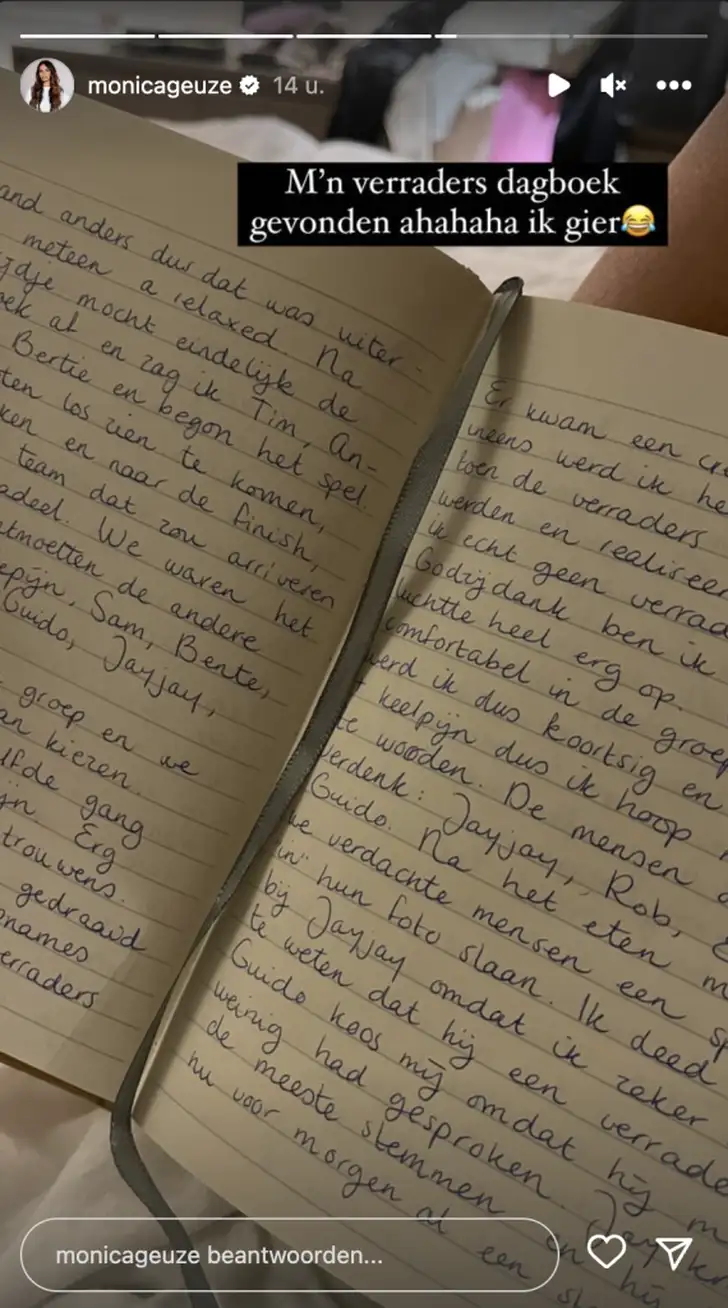 monicageuze 14 u.
M'n verraders dagboek
gevonden ahahaha ik gier😂
and anders dus dat was uiter-
meteen a relaxed. Na
ijdje mocht eindelijk de
oek af en zag ik Tim, An-
Bertie en begon het spel.
ten los zien te komen,
ken en naar de finish,
team dat zou arriveren
adeel. We waren het
ntmoetten de andere
epijn, Sam, Bente,
Guido, Jayjay,
groep en we
an kiezen.
lfde gang
ijn Erg
trouwens.
gedraaid
pnames
erraders
Er kwam een cr
ineens werd ik he
toen de verraders
werden en realiseer
ik echt geen verrad
Godzijdank ben ik
luchtte heel erg op.
comfortabel in de groep
werd ik dus koortsig en
keelpijn dus ik hoop
te worden. De mensen d
verdenk: Jayjay, Rob,
Guido. Na het eten m
we verdachte mensen een sp
in" hun foto slaan. Ik deed
bij Jayjay omdat ik zeker
te weten dat hij een verrade
Guido koos mij omdat hij m
weinig had gesproken. Jay
de meeste stemmen en hij
nu voor morgen al een
monicageuze beantwoorden...